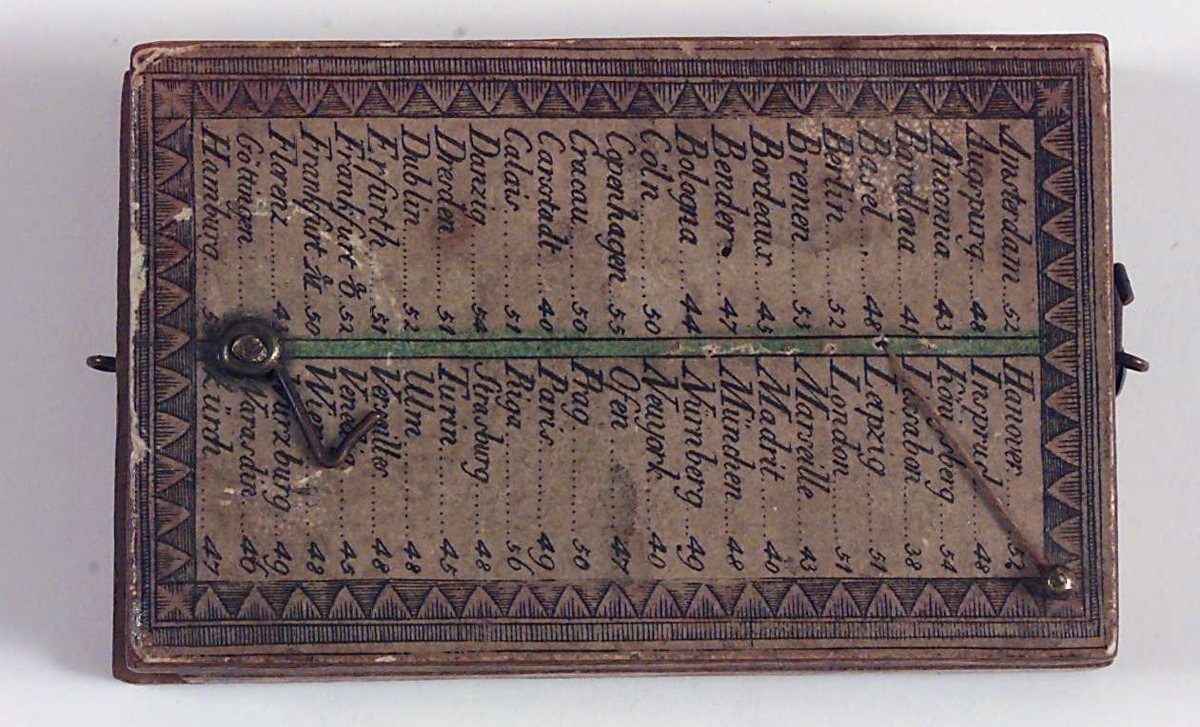 Amsterdam... 52
Augspurg... 48
Ancona... 43
Barcellona... 41
Basel... 48
Berlin... 52
Bremen... 53
Bordeaux... 45
Bender... 47
Bologna... 44
Cöln... 50
Copenhagen... 55
Cracau... 50
Carstadt... 40
Calais... 51
Danzig... 54
Dresden... 51
Dublin... 52
Erfurth... 51
Frankfurt ð 52
Frankfurt 50
Florenz...
Göttingen
Hamburg...
Hanover... 52
Inspruck 48
Königsberg 54
Lissabon... 38
Leipzig... 51
London... 51
Marseille... 43
Madrit... 40
München... 48
Nürnberg... 49
Neujork... 40
Ofen... 47
Prag... 50
Paris... 49
Riga... 56
Strasburg... 48
Turin... 45
Ulm... 48
Versailles... 48
Vened... 45
Wien... 48
Würzburg... 49
Warasdin... 46
Zürch... 47